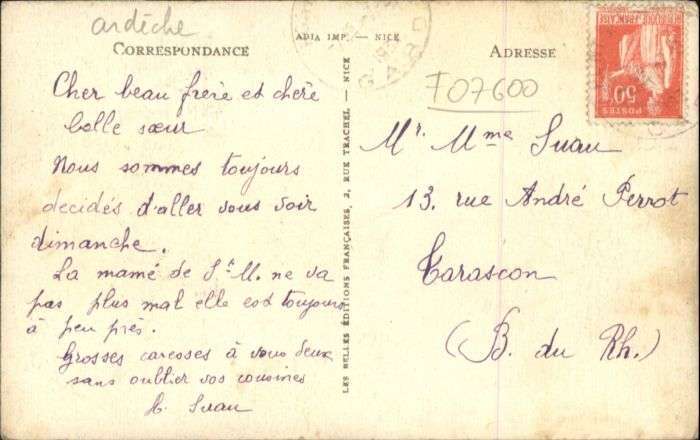 ardèche
CORRESPONDANCE
ADIA IMP. — NICE
ADRESSE
F07600
Cher beau frère et chère
belle sœur
Nous sommes toujours
decidés d'aller vous voir
dimanche.
La mamé de St M. ne va
pas plus mal elle est toujours
à peu près.
Grosses caresses à vous deux
sans oublier vos cousines
Suau
LES BELLES ÉDITIONS FRANÇAISES, 2, RUE TRACHEL — NICE
Mr. Mme Suau
13, rue André Perrot
Tarascon
(B. du Rh.)
REPUBLIQUE FRANÇAISE
50c
POSTES